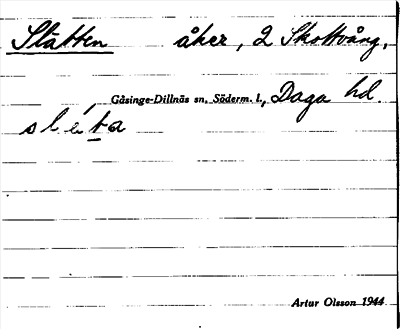 Slätten åker, 2 Skottvång,
Gåsinge-Dillnäs sn, Söderm. l., Daga hd.
sléta
Artur Olsson 1944